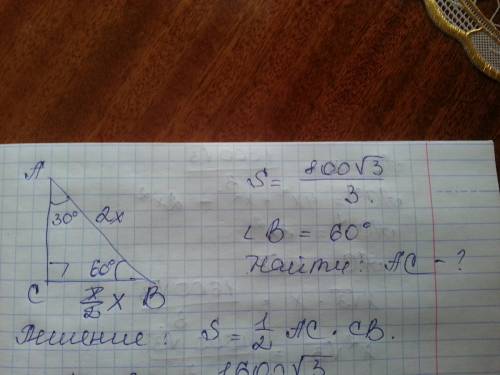 A
30°
2x
60°
C
x
B
S = 800√3 / 3.
∠B = 60°
Найти: AC - ?
Решение: S = 1/2 AC · CB.